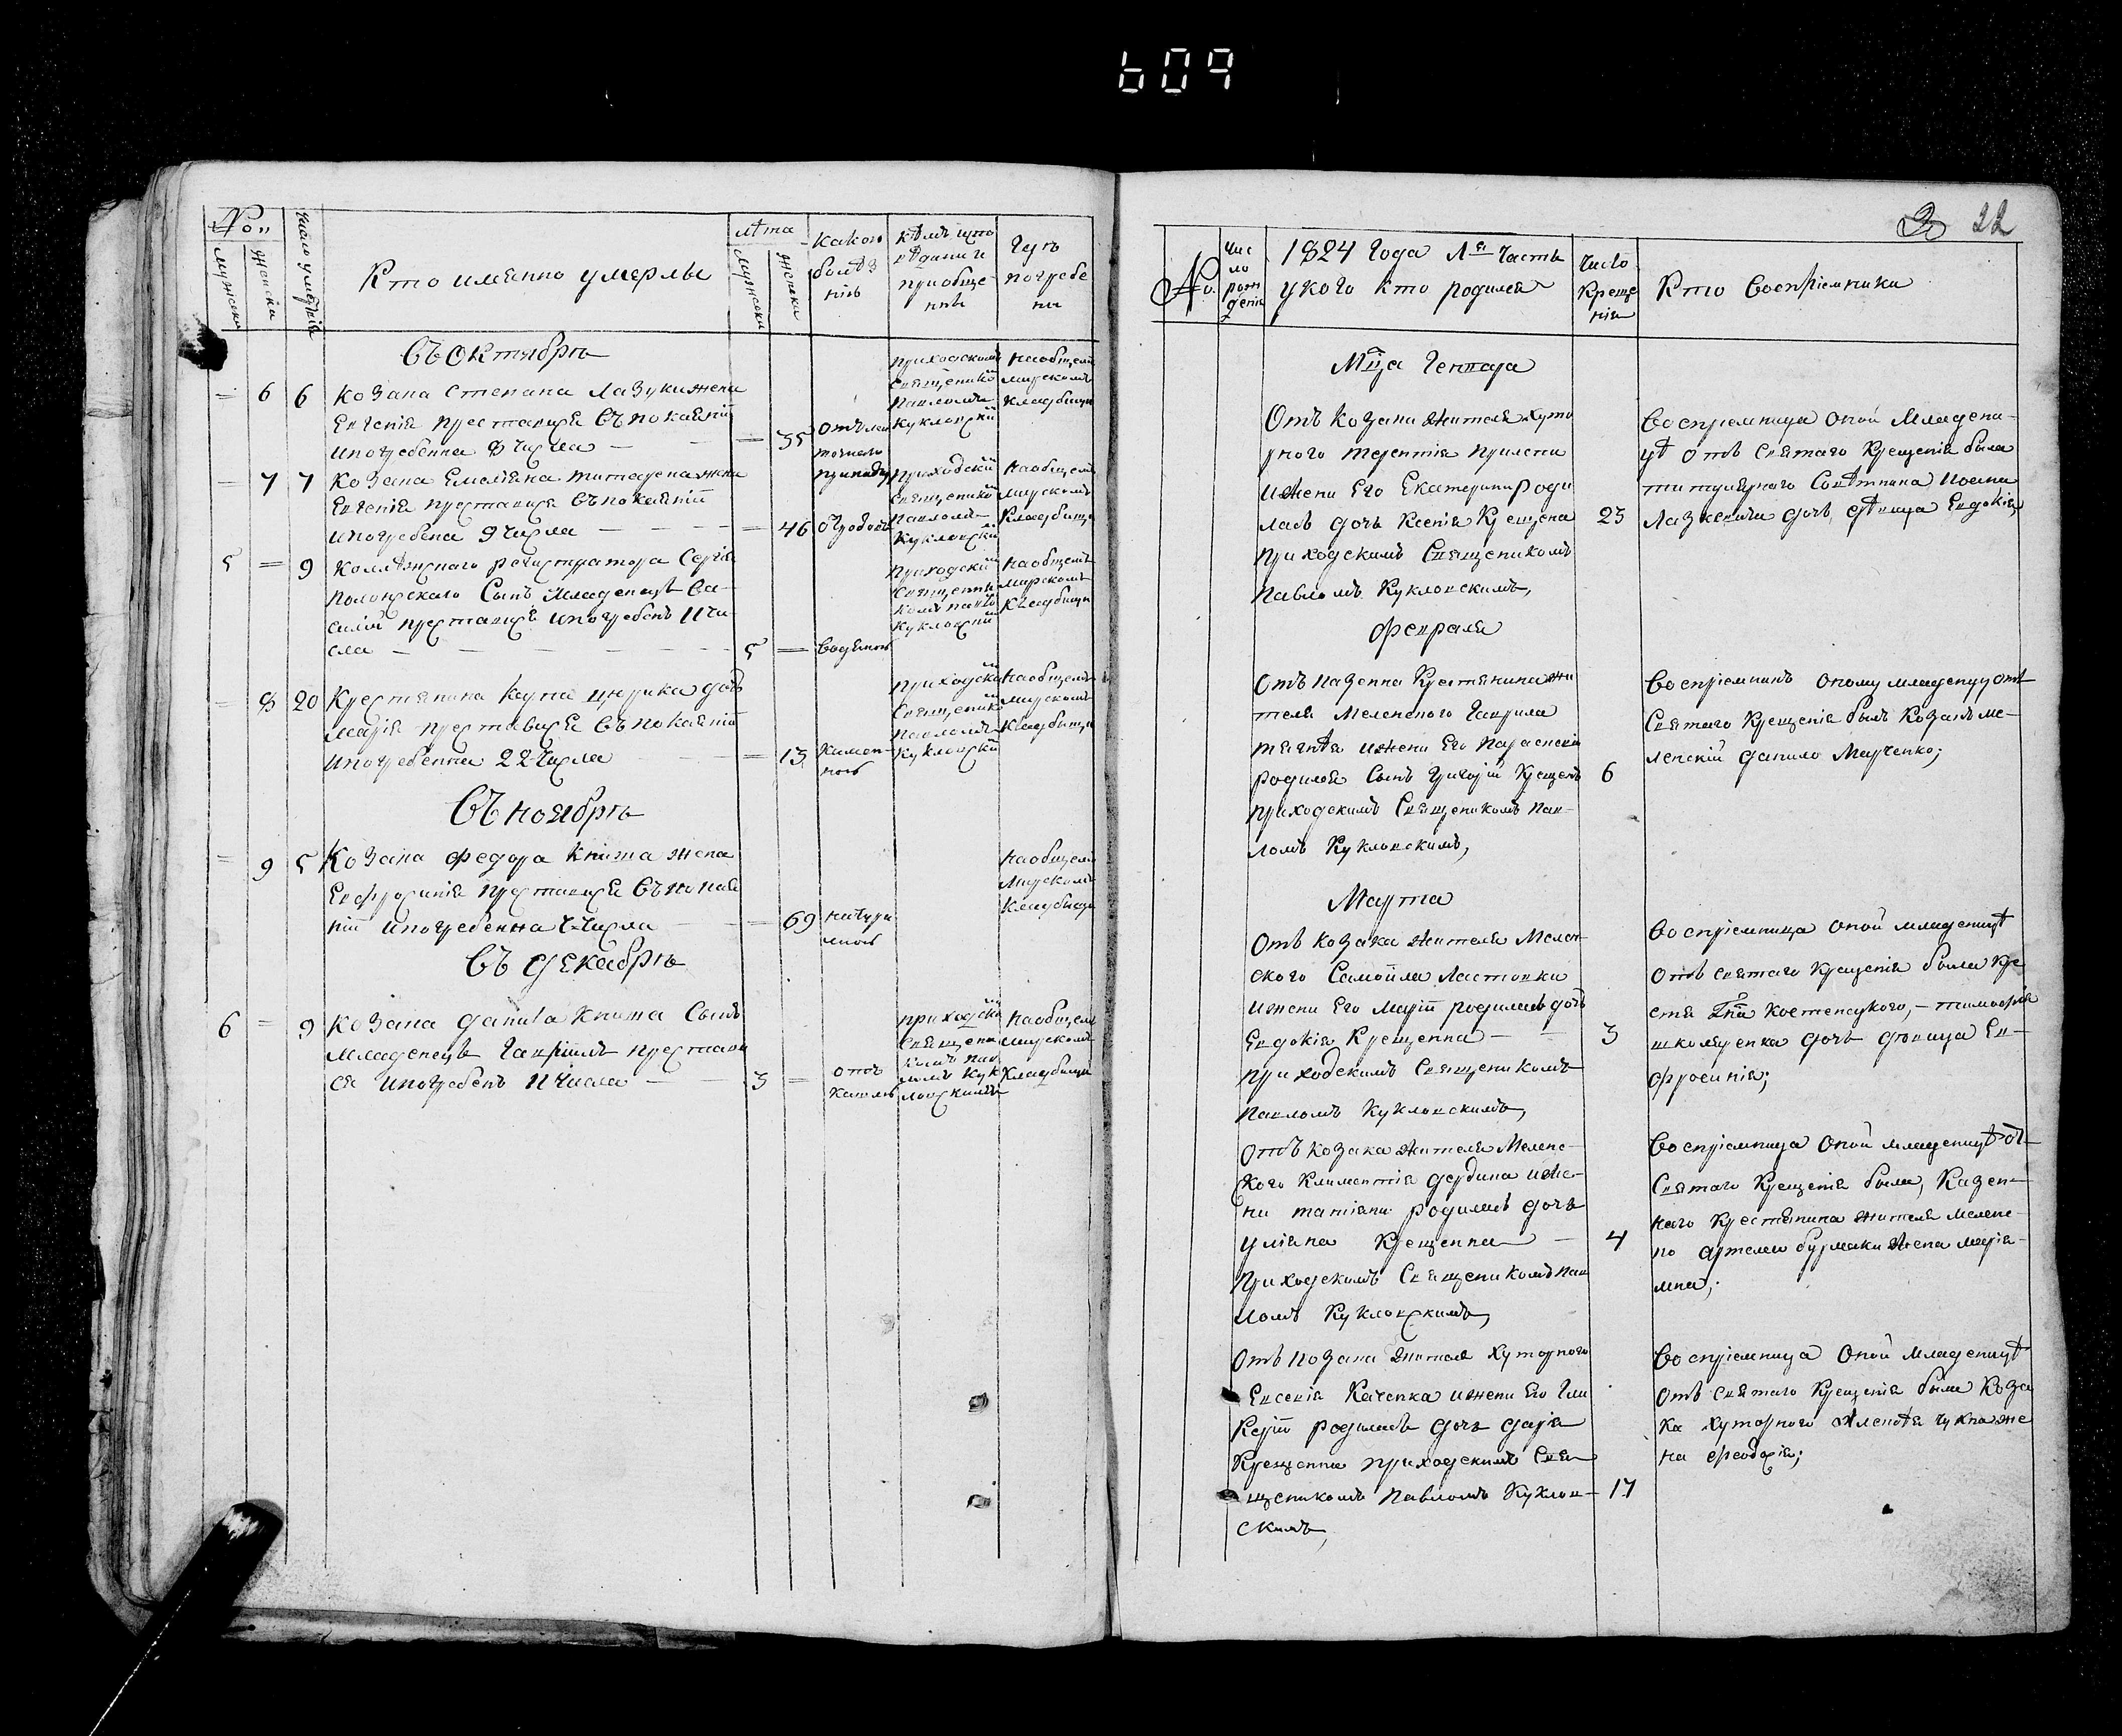 609
No
мужска
женска
число умертвія
Кто имянно умерлы
лѣта
мужска
женска
какою
болѣз
нію
кѣмъ
приобще
ны
Гдѣ
погребе
ны
Въ Октябрѣ
= 6 6 Козака Степана Лазуки жена
Евгенія преставися въ покаяніи
и погребенна 8 числа — = 35
приходским
священико
Павломъ
Кукловски
на общемъ
мирскомъ
кладбищи
= 7 7 Козака Емелiяна жена
Евгенія преставися въ покаяніи
и погребена 9 числа — = 46
приходски
священико
Павломъ
Кукловски
на общемъ
мирскомъ
кладбищи
5 = 9 Коллѣжского регистратора Сергія
Полонского Сынъ младенецъ Ва-
силій преставися и погребенъ 11 чи-
сла — 5 — водяною
приходски
священни
комъ Павло
Куклоски
на общемъ
мирскомъ
кладбищи
= 8 20 Крестянина дочь
Марія преставися въ покаяніи
и погребенна 22 числа = 13
приходски
священико
Павломъ
Куклоски
на общемъ
мирскомъ
кладбищи
Въ Ноябрѣ
= 9 5 Козака Федора Книша жена
Евфросинія преставися въ покая
ніи и погребенна 7 числа — = 69 натура
лною
на общемъ
мирскомъ
кладбищи
Въ Декабрѣ
6 = 9 Козака Данила Книша Сынъ
Младенецъ Гавріилъ преставы
ся и погребенъ 11 числа — 3 = отъ
кашлю
приходски
священи
комъ Пав
ломъ Кук
ловскимъ
на общемъ
мирскомъ
кладбищи
22
No.
Чис
ло
рож
денія
1824 Года 1я Часть
у кого кто родился
Число
Креще
нія
Кто Воспріемники
Мца Генваря
Отъ козака жителя хуто
рного Терентія
и жены Его Екатерины роди
лась дочь Ксенія Крещена 23
приходскимъ Священикомъ
Павломъ Кукловскимъ,
Воспріемница оной Младени-
цѣ отъ Святаго Крещенія была
титулярного Совѣтника Иоана
Лазкевича дочь дѣвица Евдокія,
Февраля
Отъ казенна Крестянина жи
теля Меленского Гаврила
и жены Его Параскевіи
родился Сынъ Григорій Крещенъ 6
приходскимъ Священикомъ Пав-
ломъ Куклонскимъ,
Воспріемникъ оному младенцу отъ
Святаго Крещенія былъ Козакъ Ме-
ленскій Данило Марченко;
Марта
Отъ козака жителя Мелен-
ского Самойла Ластовки
и жены Его Маріи родилась дочь
Евдокія Крещенна — 3
приходскимъ Священикомъ
Павломъ Куклонскимъ,
Воспріемница оной младеницѣ
отъ Святаго Крещенія была
Костенецкого, — Тимофѣя
дочь дѣвица Ев-
фросинія;
Отъ козака жителя Меленс-
кого Климентія Дердина и же-
ны Татіяны родилась дочь
Уліяна Крещенна — 4
приходскимъ Священикомъ Пав
ломъ Куклонскимъ,
Воспріемница оной младеницѣ от
Святаго Крещенія была, Казен-
наго Крестянина жителя Меленс-
ко Артема Бурмаки жена Марія-
мна;
Отъ козака жителя Хуторного
Евсевія Каченка и жены Его Гли
Керіи родилась дочь Дарія
Крещенна приходскимъ Свя-
щеникомъ Павломъ Куклон- 17
скимъ,
Воспріемница оной младеницѣ
отъ Святаго Крещенія была Коза
ка хуторного же
на Феодосія;